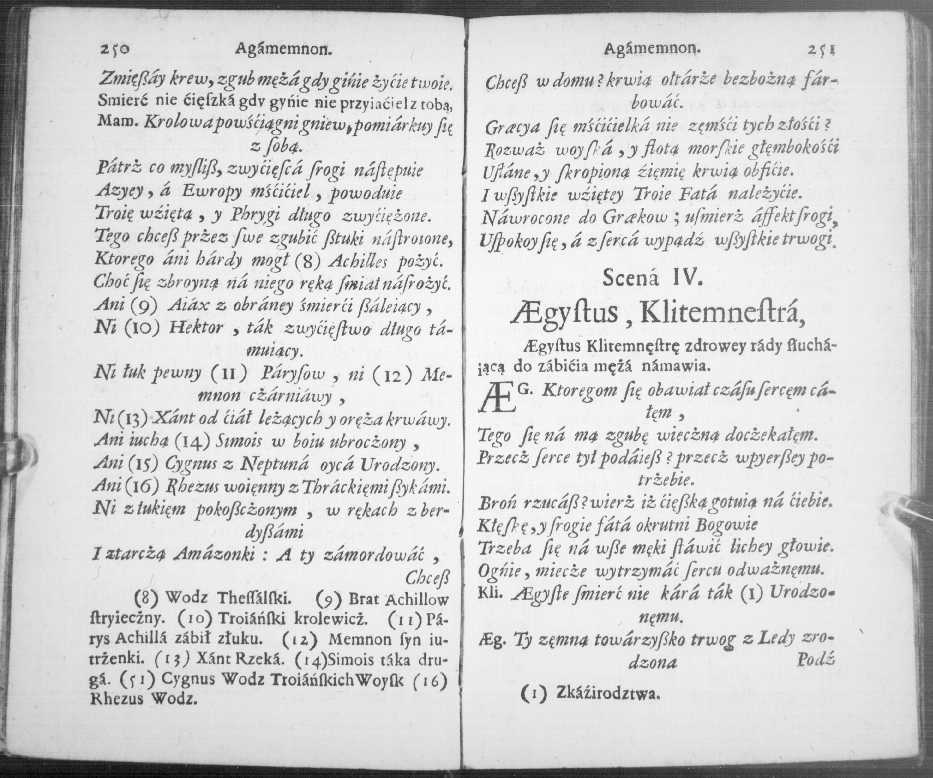 250 Agámemnon.
Zmięßáy krew, zgub mężá gdy gińie żyćie twoie.
Smierć nie ćięſzká gdy gyńie nie przyiaćiel z tobą,
Mam. Krolowa powśćiągni gniew, pomiárkuy ſię
z ſobą.
Pátrż co myſliß, zwyćięſcá ſrogi náſtępuie
Azyey, á Ewropy mśćićiel, powoduie
Troię wźięta, y Phrygi długo zwyćiężone.
Tego chceß przez ſwe zgubić ßtuki náſtroione,
Ktorego áni hárdy mogł (8) Achilles pożyć.
Choć ſię zbroyną ná niego ręką ſmiał náſrożyć.
Ani (9) Aiáx z obráney śmierći ßáleiący,
Ni (10) Hektor, ták zwyćięſtwo długo tá-
muiący.
Ni łuk pewny (11) Páryſow, ni (12) Me-
mnon czárniáwy,
Ni (13) Xánt od ćiáł leżących y oręża krwáwy.
Ani iuchą (14) Simois w boiu ubroczony,
Ani (15) Cygnus z Neptuná oycá Urodzony.
Ani (16) Rhezus woięnny z Thráckięmi ßykámi.
Ni z łukięm pokoßczonym, w rękach z ber-
dyßámi
I ztarczą Amázonki : A ty zámordowáć,
Chceß
(8) Wodz Theſſálſki. (9) Brat Achillow
ſtryieczny. (10) Troiáńſki krolewicż. (11) Pá-
rys Achillá zábił złuku. (12) Memnon ſyn iu-
trżenki. (13) Xánt Rzeká. (14) Simois táka dru-
gá. (51) Cygnus Wodz Troiáńſkich Woyſk (16)
Rhezus Wodz.
Agámemnon. 251
Chceß w domu? krwią ołtárże bezbożną fár-
bowáć.
Græcya ſię mśćićielká nie zęmśći tych złośći?
Rozważ woyſká, y flotą morſkie głęmbokośći
Uſłáne, y ſkropioną źięmię krwią obficie.
I wßyſtkie wźiętey Troie Fatá należyćie.
Náwrocone do Grækow; uſmierż áffekt ſrogi,
Uſpokoy ſię, á z ſercá wypądź wßyſtkie trwogi.
Scená IV.
Ægyſtus, Klitemneſtrá,
Ægyſtus Klitemnęſtrę zdrowey rády ſłuchá-
iącą do zábićia mężá námawia.
ÆG. Ktoregom ſię obawiał czáſu ſercęm cá-
łęm,
Tego ſię ná mą zgubę wieczną doczekałęm.
Przecż ſerce tył podáieß? przecż wpyerßey po-
trżebie.
Broń rzucáß? wierż iż ćięßką gotuią ná ćiebie.
Klęſkę, y ſrogie fátá okrutni Bogowie
Trzeba ſię ná wße męki ſtáwić lichey głowie.
Ogńie, miecże wytrzymáć ſercu odważnęmu.
Kli. Ægyſte ſmierć nie kárá ták (1) Urodzo-
nęmu.
Æg. Ty zęmną towárzyßko trwog z Ledy zro-
dzona Podź
(1) Zkáźirodztwa.